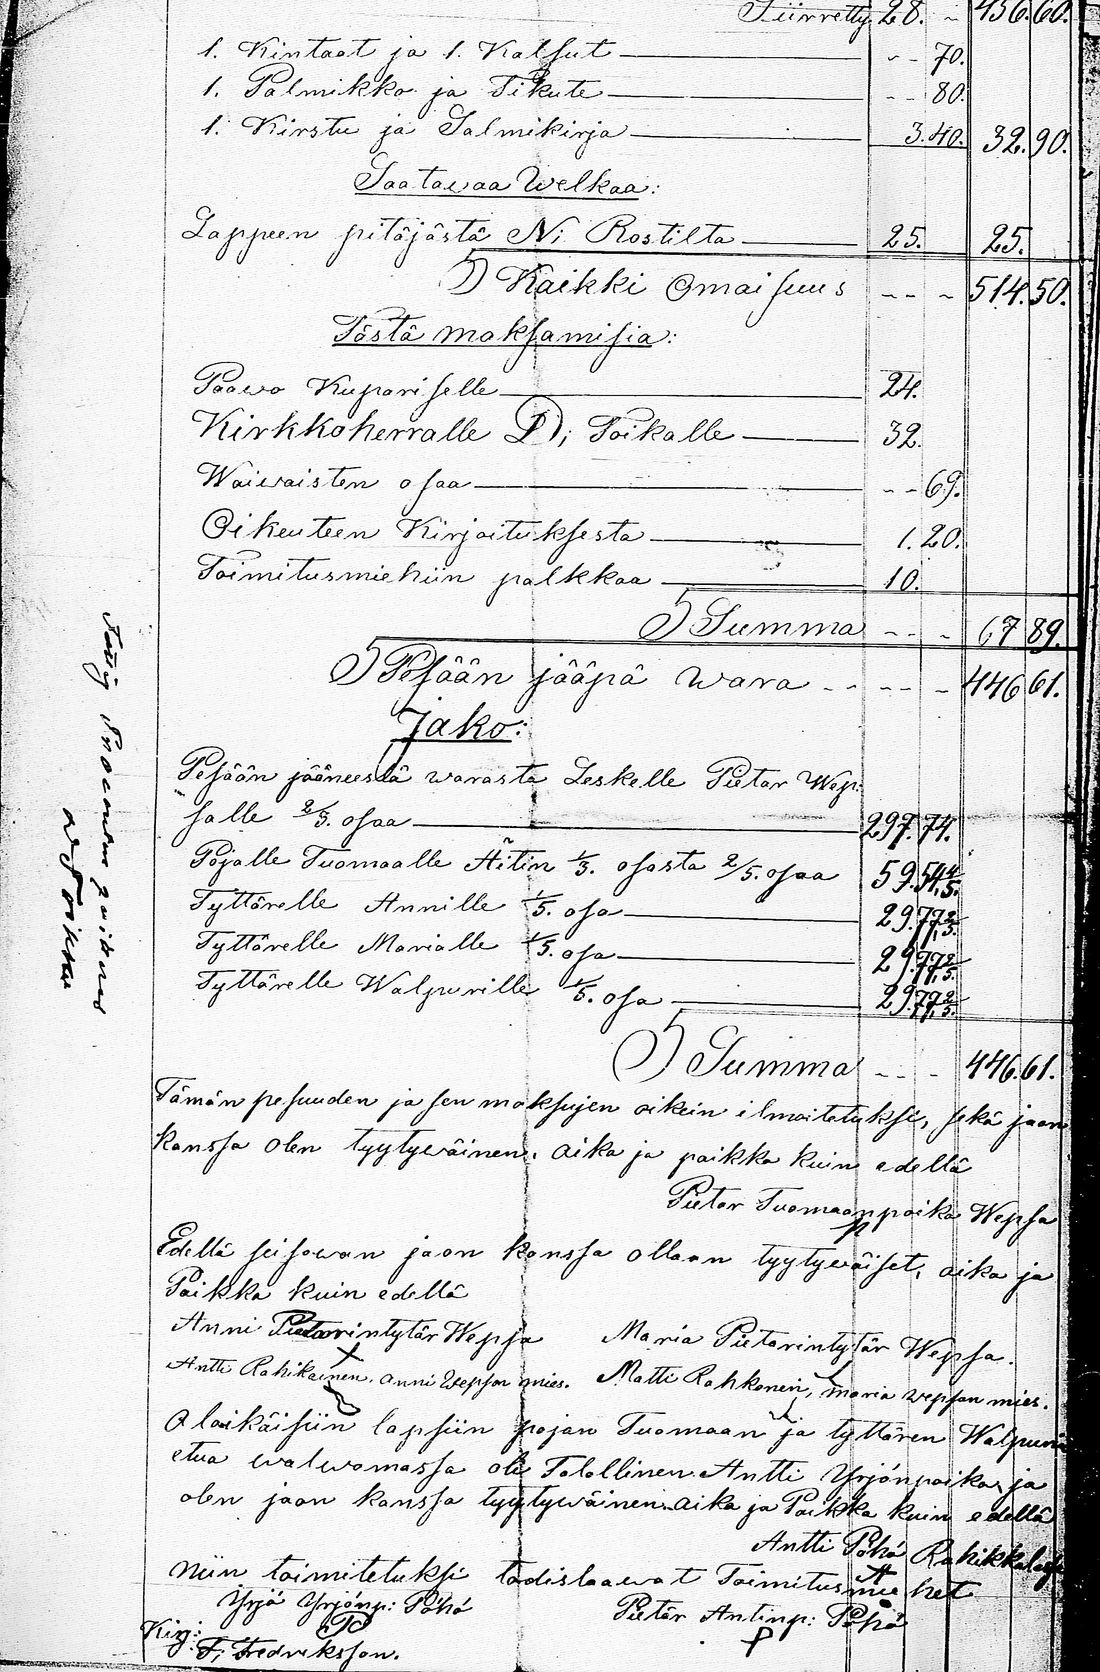 Siirretty 28. ~ 456.60.
1. Kintaat ja 1. Kalsut - - 70.
1. Palmikko ja Tikute - - 80.
1. Kirstu ja Salmikirja 3.40. 32.90.
Saatawaa Welkaa:
Lappeen pitäjästä N; Rostilta 25. 25.
Kaikki Omaisuus - - ~ 514.50.
Tästä maksamisia:
Paawo Kupariselle 24.
Kirkkoherralle D; Toikalle 32.
Waiwaisten osaa - - 69.
Oikeuteen Kirjoituksesta 1.20.
Toimitusmiehiin palkkaa 10.
Summa - - - 67 89.
Pesään jääpä wara - - - - ~ 446 61.
Jako:
Pesään jääneestä warasta Leskelle Pietar Wep:
salle 2/3. osaa 297.74.
Pojalle Tuomaalle Äitin 1/3. osasta 2/5. osaa 59.54 4/5.
Tyttärelle Annille 1/5. osa 29.77 2/5.
Tyttärelle Marialle 1/5. osa 29.77 2/5.
Tyttärelle Walpurille 1/5. osa 29.77 2/5.
Summa - - - 446.61.
Tämän pesuuden ja sen maksujen oikein ilmoitetuksi, sekä jaon
kanssa olen tyytywäinen, aika ja paikka kuin edellä
Pietar Tuomaanpoika Wepsa
Edellä seisowan jaon kanssa ollaan tyytywäiset, aika ja
Paikka kuin edellä
Anni Pietarintytär Wepsa Maria Pietarintytär Wepsa.
Antti Rahikainen. Anni Wepsan mies. Matti Rahkonen, Maria wepsan mies.
Alaikäisiin lapsiin pojan Tuomaan ja tyttären Walpurin
etua walwomassa oli Talollinen Antti Yrjönpoika, ja
olen jaon kanssa tyytywäinen. aika ja Paikka kuin edellä
Antti Pöhö
Niin toimitetuksi todistaawat Toimitusmiehet
Yrjö Yrjönp: Pöhö Pietar Antinp: Pöhö
Kirj:
F; Fredriksson.